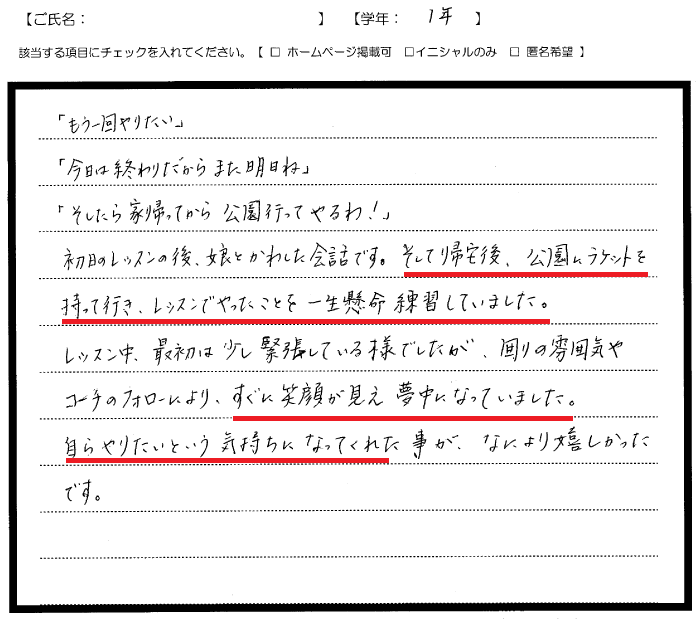 【ご氏名： 】 【学年： 1年 】
該当する項目にチェックを入れてください。【 □ ホームページ掲載可 □イニシャルのみ □ 匿名希望 】
「もう一回やりたい」
「今日は終わりだからまた明日ね」
「そしたら家帰ってから公園行ってやるわ!」
初日のレッスンの後、娘とかわした会話です。そして帰宅後、公園にラケットを
持って行き、レッスンでやったことを一生懸命練習していました。
レッスン中、最初は少し緊張している様でしたが、回りの雰囲気や
コーチのフォローにより、すぐに笑顔が見え夢中になっていました。
自らやりたいという気持ちになってくれた事が、なにより嬉しかった
です。